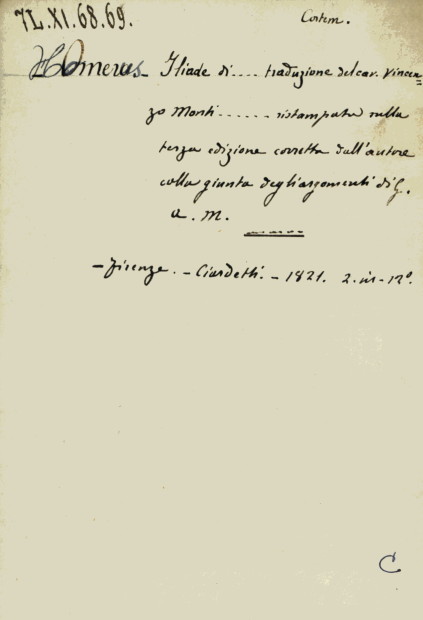 7L.XI.68.69.
Contem.
Homerus - Iliade di .... traduzione del cav. Vincen=
zo Monti ...... ristampata sulla
terza edizione corretta dall'autore
colla giunta degli argomenti di G.
a. M.
- Firenze. - Ciardetti. - 1821. 2. in - 12º.
C